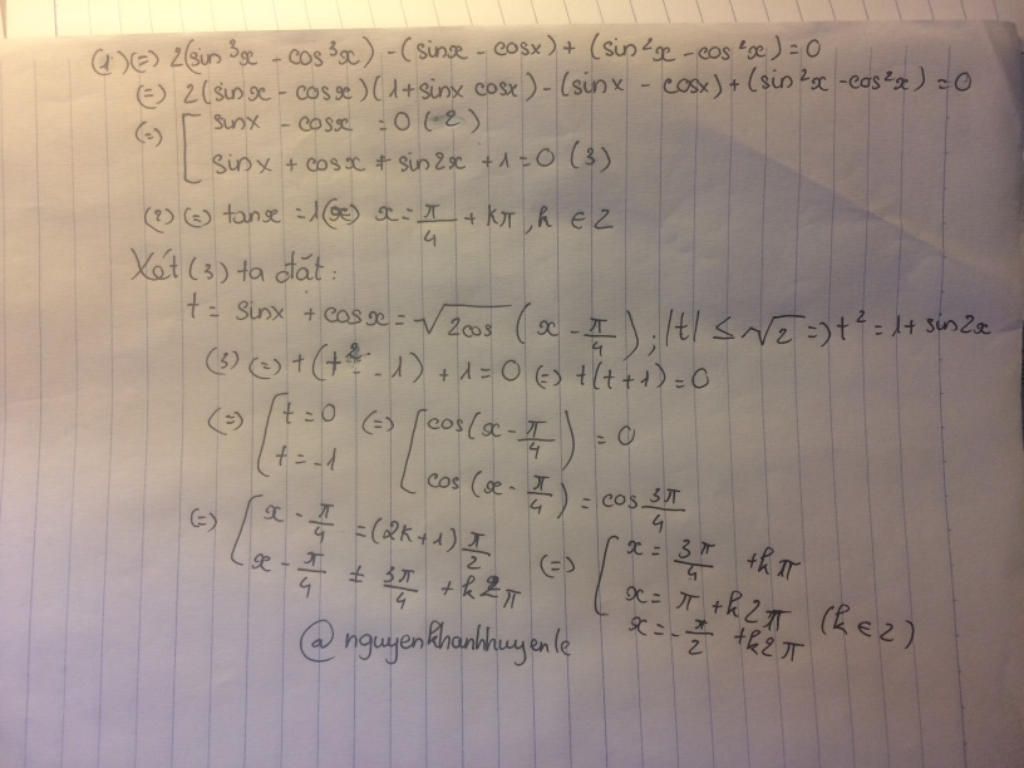 (1) (=) 2(sin³x - cos³x) - (sinx - cosx) + (sin²x - cos²x) = 0
(=) 2(sinx - cosx)(1 + sinx cosx) - (sinx - cosx) + (sin²x - cos²x) = 0
(=) [ sinx - cosx = 0 (2)
sinx + cosx + sin2x + 1 = 0 (3)
(2) (=) tanx = 1 (=) x = π/4 + kπ, k ∈ Z
Xét (3) ta đặt:
t = sinx + cosx = √2cos (x - π/4); |t| ≤ √2 => t² = 1 + sin2x
(3) (=) t (t² - 1) + 1 = 0 (=) t(t + 1) = 0
(=) [ t = 0 (=) [ cos(x - π/4) = 0
t = -1 cos(x - π/4) = cos 3π/4
(=) [ x - π/4 = (2k + 1) π/2 (=) [ x = 3π/4 + kπ
x - π/4 ± 3π/4 + k2π x = π + k2π (k ∈ Z)
x = -π/2 + k2π
@nguyenkhanhhuyenle